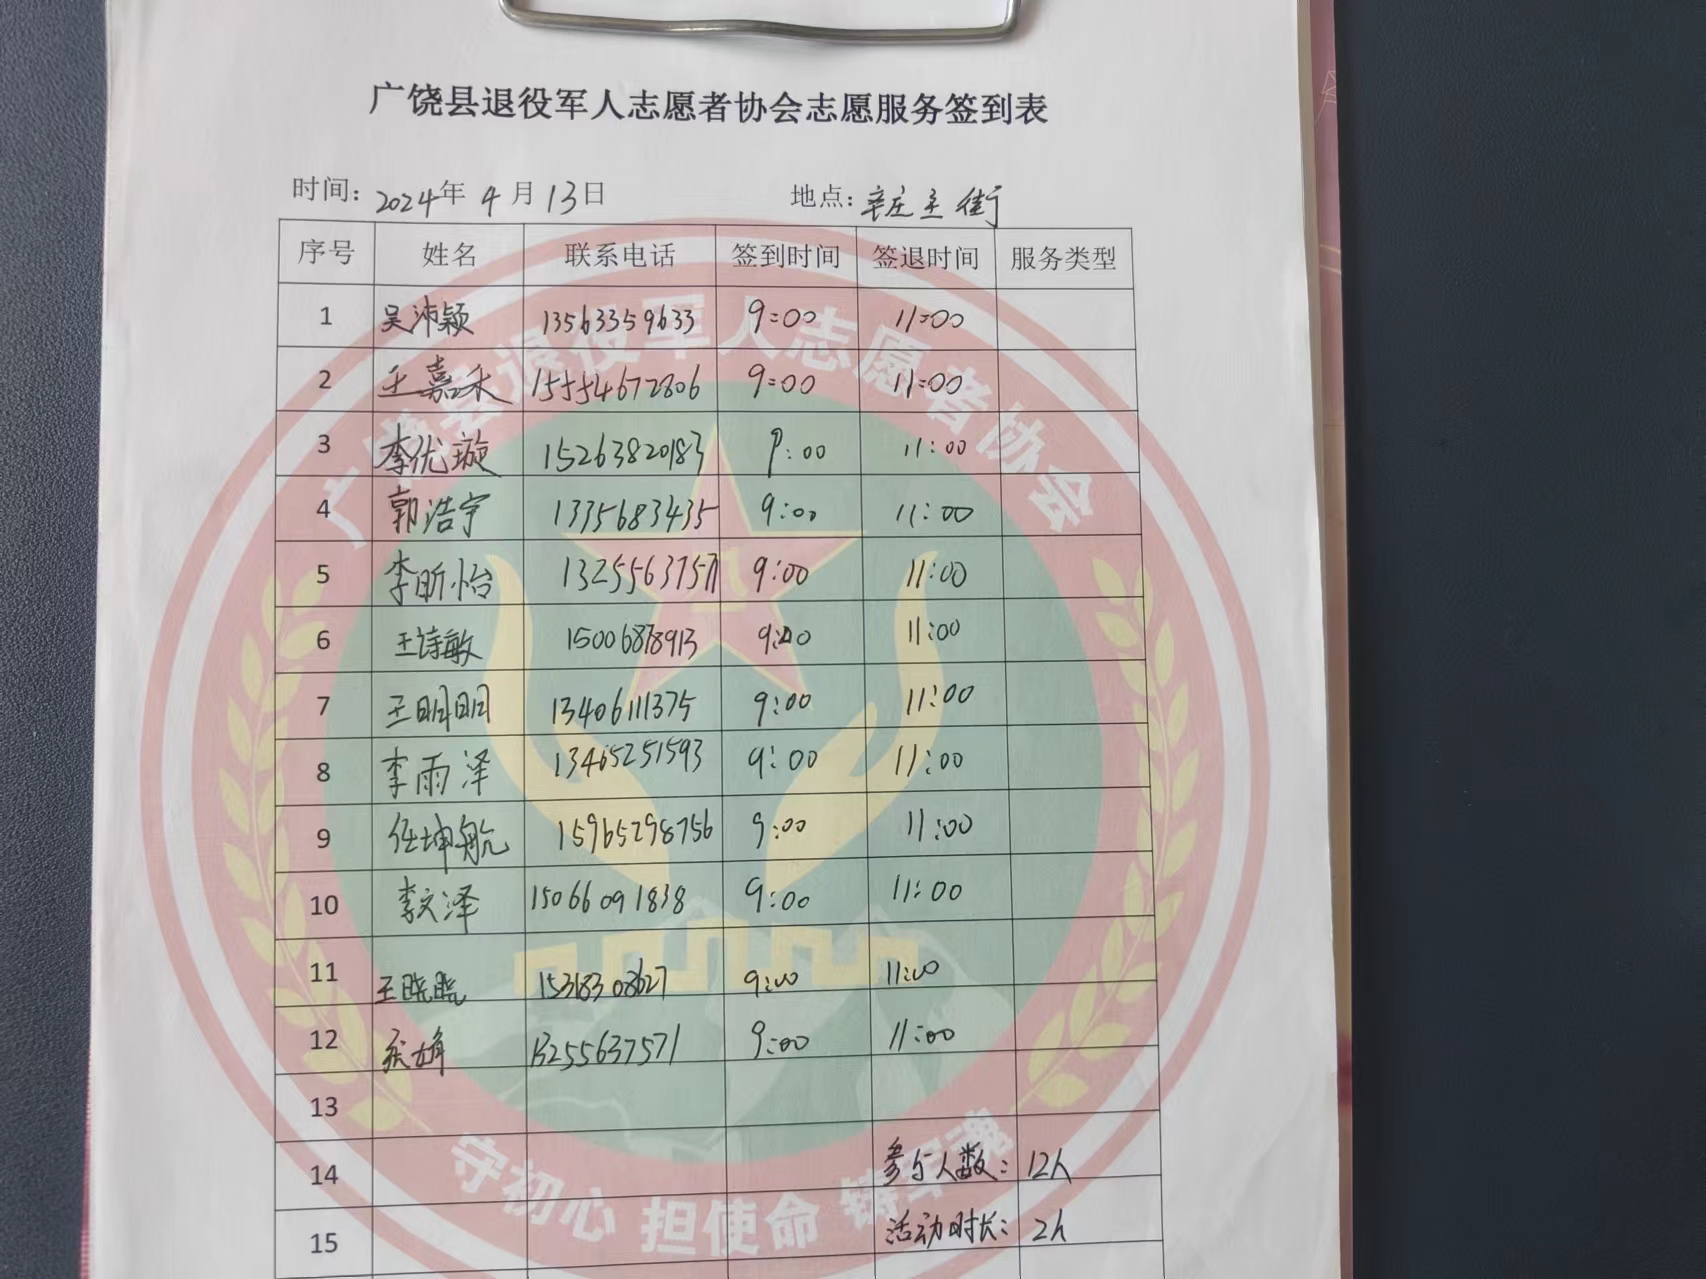 广饶县退役军人志愿者协会志愿服务签到表
时间: 2024年 4月 13日 地点: 辛庄主街
序号 姓名 联系电话 签到时间 签退时间 服务类型
1 吴沛颖 13563359633 9:00 11:00
2 王嘉禾 15554672806 9:00 11:00
3 李优璇 15263820183 9:00 11:00
4 郭浩宇 1335683435 9:00 11:00
5 李昕怡 13255637571 9:00 11:00
6 王诗敏 15006878913 9:00 11:00
7 王明明 13406111375 9:00 11:00
8 李雨泽 13465251593 9:00 11:00
9 任坤航 15965298756 9:00 11:00
10 李文泽 15066091838 9:00 11:00
11 王晓晓 15318308627 9:00 11:00
12 13255637571 9:00 11:00
13
14 参与人数: 12人
15 活动时长: 2h
广饶县退役军人志愿者协会
守初心 担使命 铸军魂